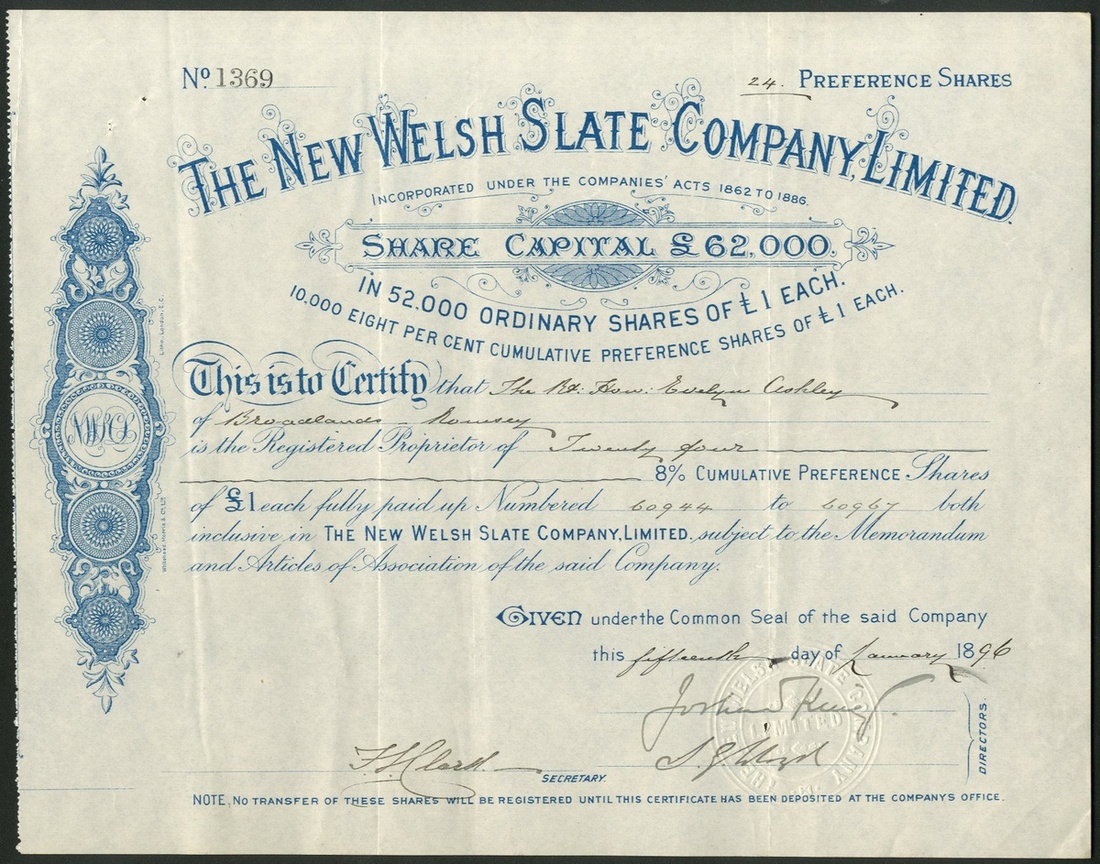 Nº 1369
24. PREFERENCE SHARES
THE NEW WELSH SLATE COMPANY, LIMITED.
INCORPORATED UNDER THE COMPANIES' ACTS 1862 TO 1886.
SHARE CAPITAL £62,000.
IN 52.000 ORDINARY SHARES OF £1 EACH.
10.000 EIGHT PER CENT CUMULATIVE PREFERENCE SHARES OF £1 EACH.
This is to Certify that The Rt. Hon: Evelyn Ashley
of Broadlands Romsey
is the Registered Proprietor of Twenty four
8% CUMULATIVE PREFERENCE Shares
of £1 each fully paid up Numbered 60944 to 60967 both
inclusive in THE NEW WELSH SLATE COMPANY, LIMITED, subject to the Memorandum
and Articles of Association of the said Company.
GIVEN under the Common Seal of the said Company
this fifteenth day of January 1896
DIRECTORS.
F. S. Clark
S. G. Lloyd
SECRETARY.
NOTE. NO TRANSFER OF THESE SHARES WILL BE REGISTERED UNTIL THIS CERTIFICATE HAS BEEN DEPOSITED AT THE COMPANY'S OFFICE.
LIMITED